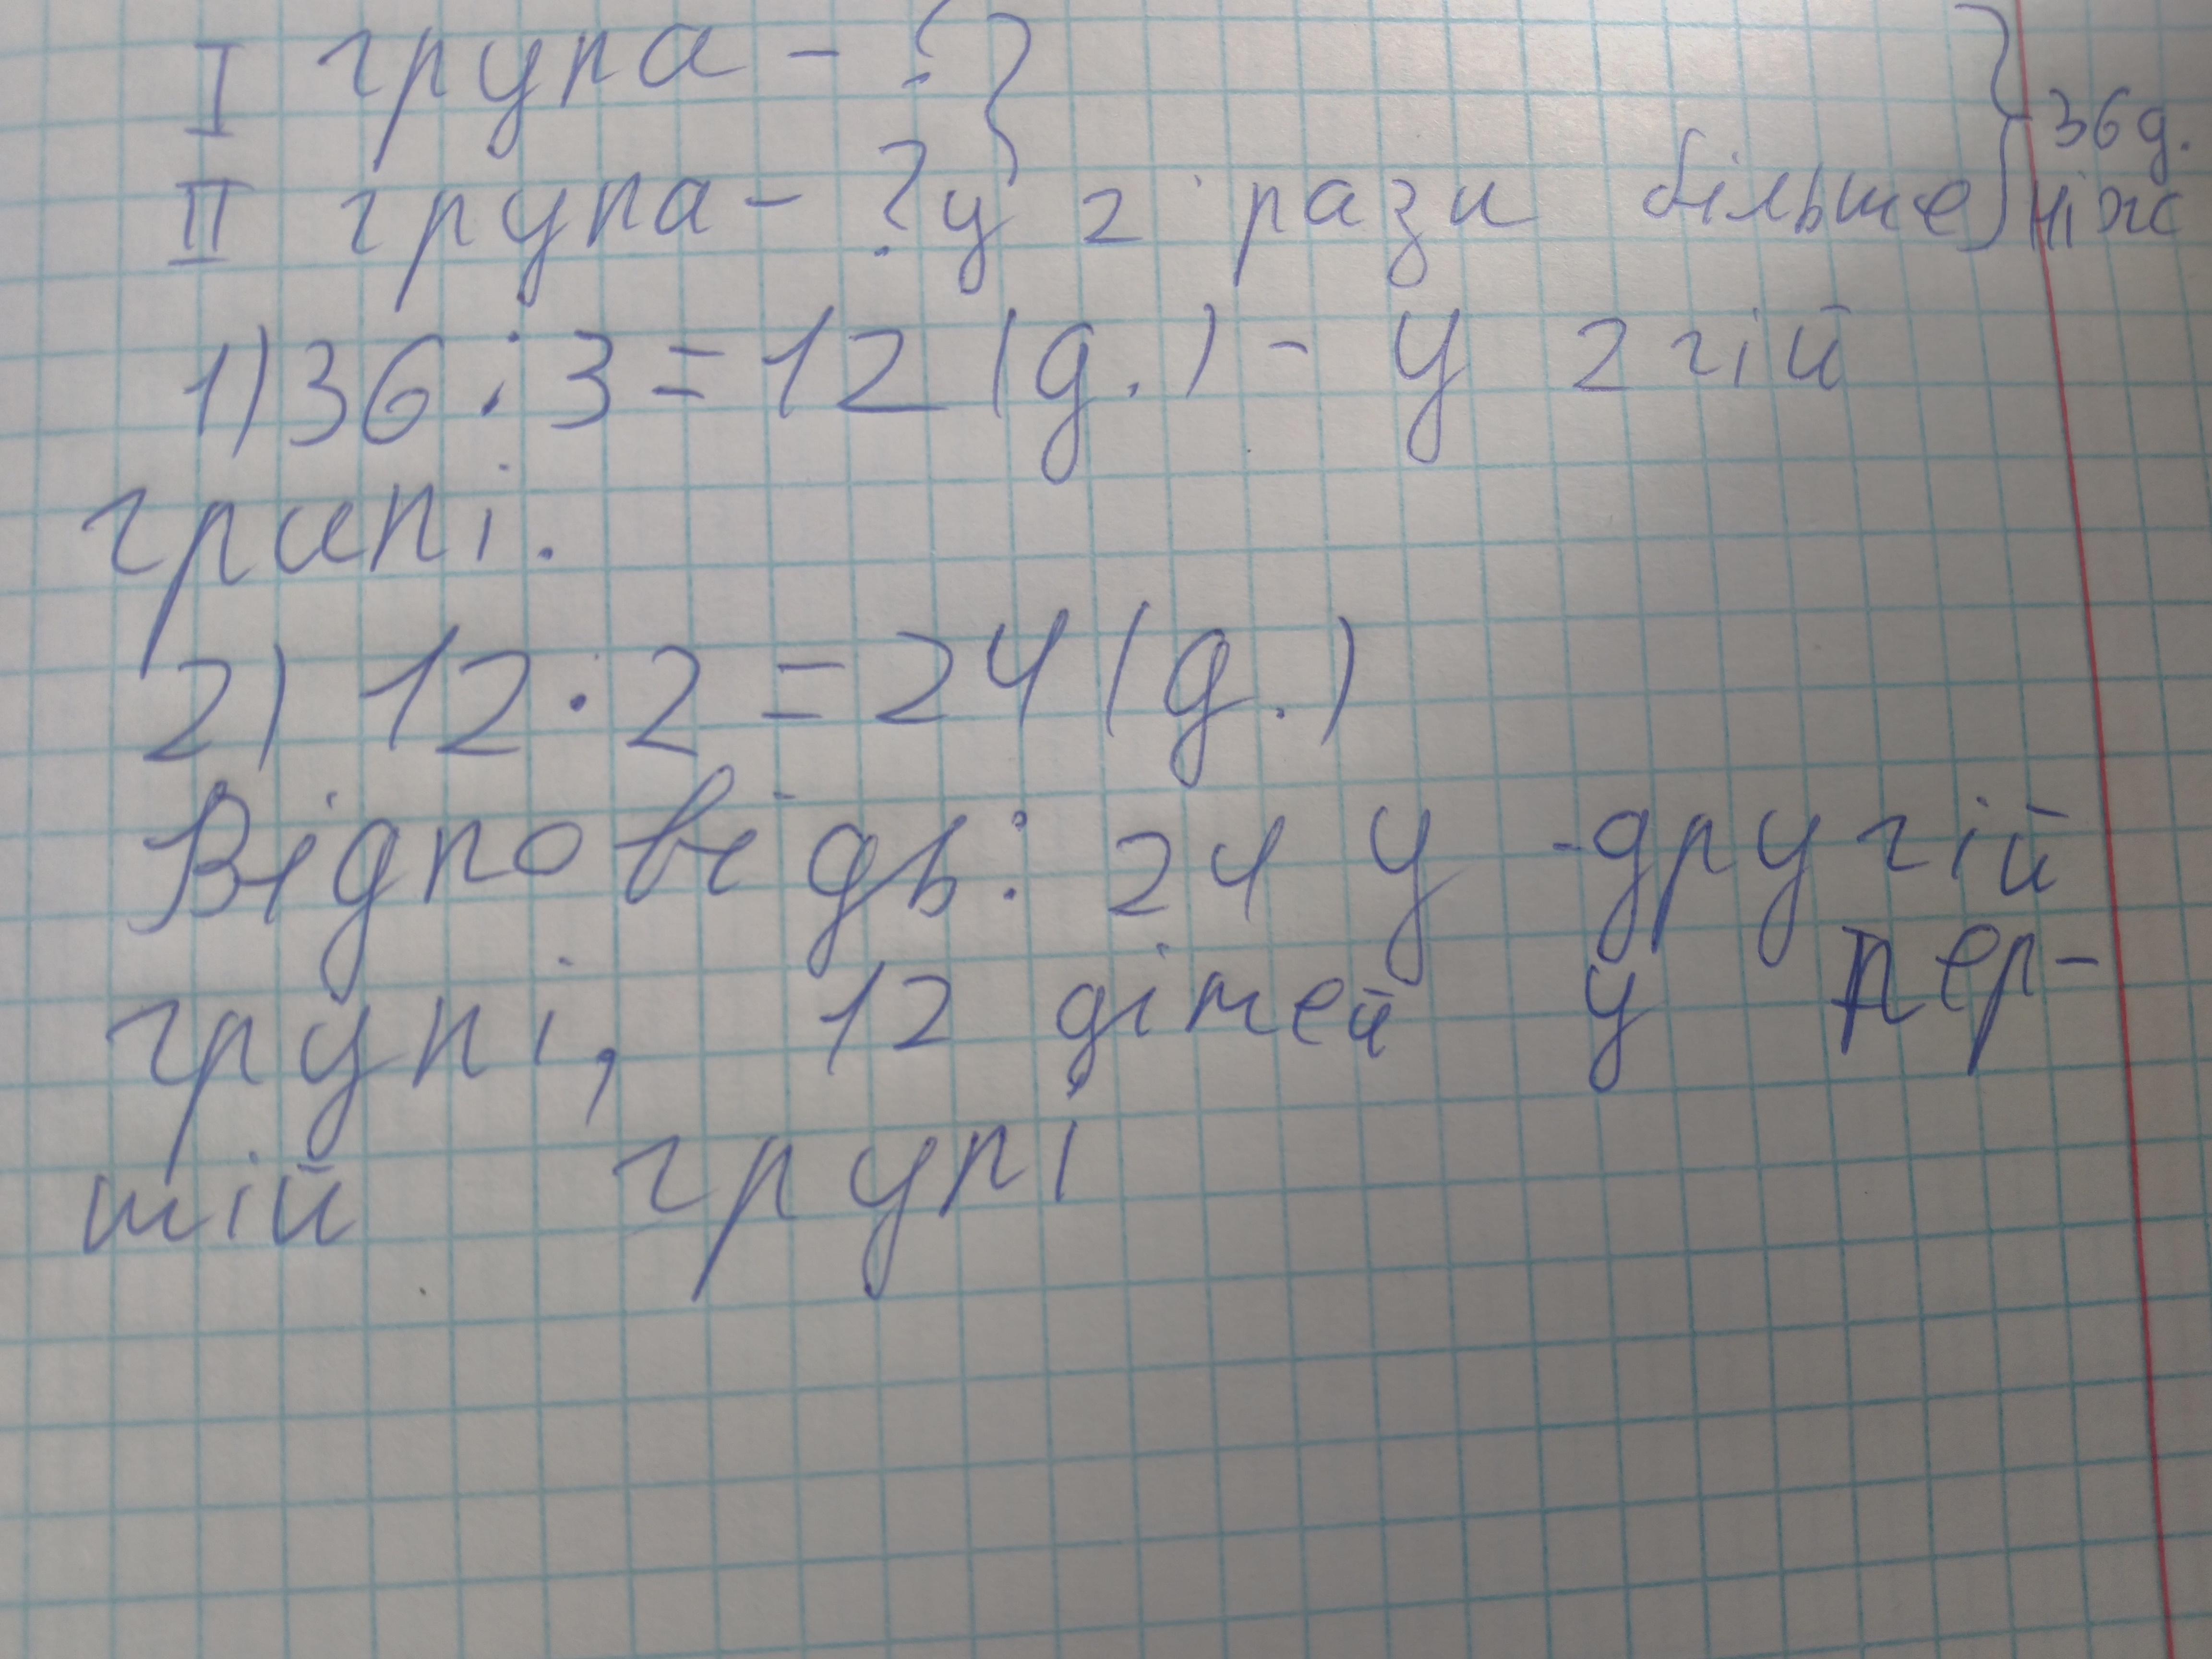 I група - ?
36 д.
II група - ? у 2 рази більше ніж
1) 36 : 3 = 12 (д.) - у 2 гій
грипі.
2) 12 · 2 = 24 (д.)
Відповідь: 24 у другій
групі, 12 дітей у пер-
шій групі